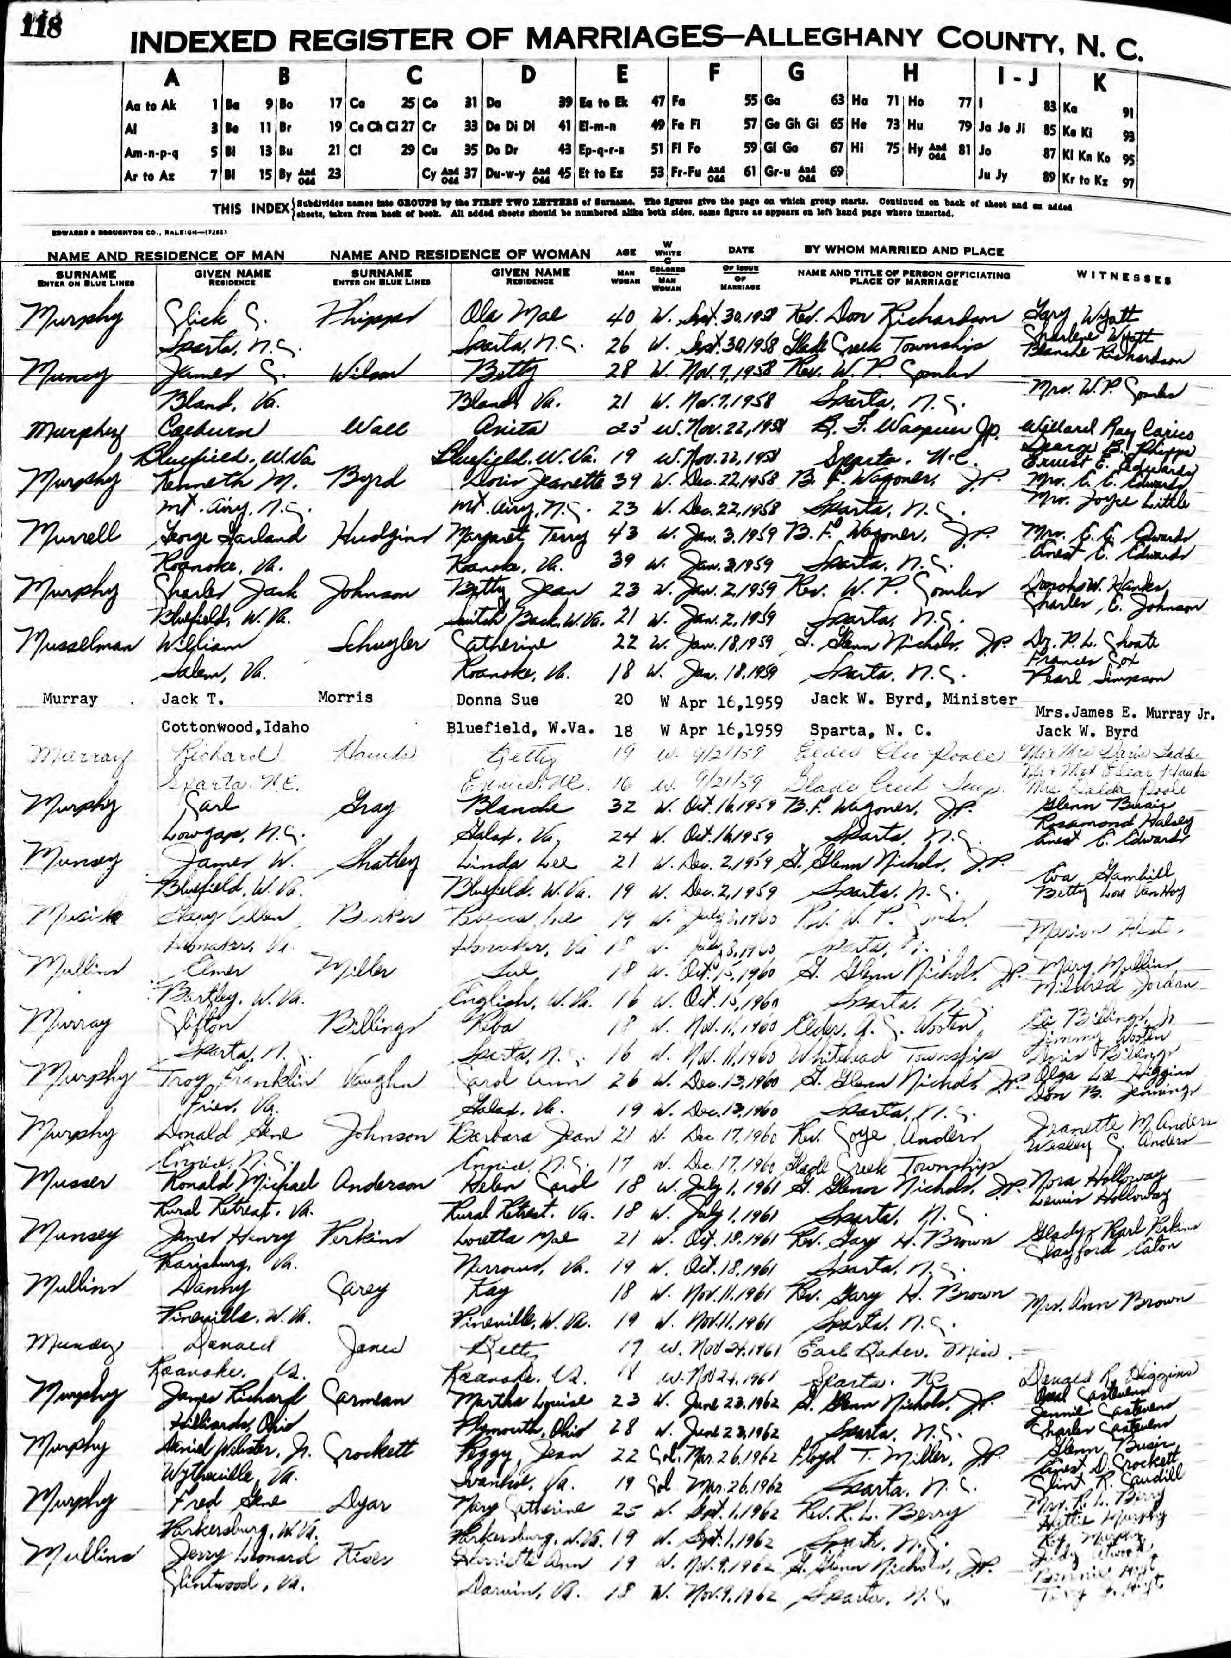 118
INDEXED REGISTER OF MARRIAGES—ALLEGHANY COUNTY, N. C.
A B C D E F G H I - J K
Aa to Ak 1 Ba 9 Bo 17 Ca 25 Co 31 Da 39 Ea to Ek 47 Fa 55 Ga 63 Ha 71 Ho 77 I 83 Ka 91
Al 3 Be 11 Br 19 Ce Ch Ci 27 Cr 33 De Di Dl 41 El-m-n 49 Fe Fi 57 Ge Gh Gi 65 He 73 Hu 79 Ja Je Ji 85 Ke Ki 93
Am-n-p-q 5 Bi 13 Bu 21 Cl 29 Cu 35 Do Dr 43 Ep-q-r-s 51 Fl Fo 59 Gl Go 67 Hi 75 Hy And Odd 81 Jo 87 Kl Kn Ko 95
Ar to Az 7 Bl 15 By And Odd 23 Cy And Odd 37 Du-w-y And Odd 45 Et to Ez 53 Fr-Fu And Odd 61 Gr-u And Odd 69 Ju Jy 89 Kr to Kz 97
THIS INDEX Subdivides names into GROUPS by the FIRST TWO LETTERS of Surname. The figures give the page on which group starts. Continued on back of sheet and on added
sheets, taken from back of book. All added sheets should be numbered alike both sides, same figure as appears on left hand page where inserted.
EDWARDS & BROUGHTON CO., RALEIGH
NAME AND RESIDENCE OF MAN NAME AND RESIDENCE OF WOMAN AGE W WHITE C COLORED DATE BY WHOM MARRIED AND PLACE
SURNAME GIVEN NAME SURNAME GIVEN NAME MAN MAN OF ISSUE NAME AND TITLE OF PERSON OFFICIATING WITNESSES
ENTER ON BLUE LINES RESIDENCE ENTER ON BLUE LINES RESIDENCE WOMAN WOMAN OF MARRIAGE PLACE OF MARRIAGE
Murphy Glick C. Phipps Ola Mae 40 W. Sept. 30, 1958 Rev. Don Richardson Gary Wyatt
Sparta, N.C. Sparta, N.C. 26 W. Sept. 30, 1958 Glade Creek Township Charlene Wyatt
Blanche Richardson
Muncy James C. Wilson Betty 28 W. Nov. 7, 1958 Rev. W. P. Combs
Bland, Va. Bland, Va. 21 W. Nov. 7, 1958 Sparta, N.C. Mrs. W.P. Combs
Murphy Coeburn Wall Anita 25 W. Nov. 22, 1958 B. F. Wagoner J.P. Willard Ray
Bluefield, W.Va. Bluefield, W.Va. 19 W. Nov. 22, 1958 Sparta, N.C. George E. Phipps
Ernest E. Edwards
Murphy Kenneth M. Byrd Doris Jeanette 39 W. Dec. 22, 1958 B. F. Wagoner, J.P. Mrs. E. E. Edwards
Mt. Airy, N.C. Mt. Airy, N.C. 23 W. Dec. 22, 1958 Sparta, N.C. Mrs. Joyce Little
Murrell George Garland Hudgins Margaret Terry 43 W. Jan. 3, 1959 B. F. Wagoner, J.P. Mrs. E. E. Edwards
Roanoke, Va. Roanoke, Va. 39 W. Jan. 3, 1959 Sparta, N.C. Ernest E. Edwards
Murphy Charles Jack Johnson Betty Jean 23 W. Jan. 2, 1959 Rev. W. P. Combs
Bluefield, W.Va. Switch Back, W.Va. 21 W. Jan. 2, 1959 Sparta, N.C. Charles E. Johnson
Musselman William Schuyler Catherine 22 W. Jan. 18, 1959 G. Glenn Nichols, J.P. Dr. P. L. Choate
Salem, Va. Roanoke, Va. 18 W. Jan. 18, 1959 Sparta, N.C. Frances Cox
Pearl Simpson
Murray Jack T. Morris Donna Sue 20 W Apr 16,1959 Jack W. Byrd, Minister Mrs.James E. Murray Jr.
Cottonwood,Idaho Bluefield, W.Va. 18 W Apr 16,1959 Sparta, N. C. Jack W. Byrd
Murray Richard Hawks Betty 19 W. 9/21/59 Elder Cleo Poole
Sparta, N.C. Ennice, N.C. 16 W. 9/21/59 Glade Creek Twsp.
Murphy Carl Gray Blanche 32 W. Oct. 16, 1959 B.F. Wagoner, J.P. Glenn Busic
Lowgap, N.C. Galax, Va. 24 W. Oct. 16, 1959 Sparta, N.C. Rosamond Halsey
Ernest E. Edwards
Munsey James W. Shatley Linda Lee 21 W. Dec. 2, 1959 G. Glenn Nichols, J.P. Eva Gambill
Bluefield, W.Va. Bluefield, W.Va. 19 W. Dec. 2, 1959 Sparta, N.C. Betty Lou VanHoy
Musick Gary Allen 19 W. July 8, 1960 Rev. W. P. Combs Marion
Honaker, Va. Honaker, Va. 18 W. July 8, 1960 Sparta, N.C.
Mullins Elmer Miller Sue 18 W. Oct. 15, 1960 G. Glenn Nichols, J.P. Mary Mullins
Bartley, W.Va. English, W.Va. 16 W. Oct. 15, 1960 Sparta, N.C. Mildred Jordan
Murray Clifton Billings Reba 18 W. Nov. 11, 1960 Elder A. C. Wooten,
Sparta, N.C. Sparta, N.C. 16 W. Nov. 11, 1960 Whitehead Township Jimmy Wooten
Murphy Troy Franklin Vaughn Carol Ann 26 W. Dec. 13, 1960 G. Glenn Nichols, J.P. Olga Lee Higgins
Fries, Va. Galax, Va. 19 W. Dec. 13, 1960 Sparta, N.C. Don B. Jennings
Murphy Donald Gene Johnson Barbara Jean 21 W. Dec. 17, 1960 Rev. Coye Anders Jeanette M. Anders
Ennice, N.C. Ennice, N.C. 17 W. Dec. 17, 1960 Glade Creek Township Wesley C. Anders
Musser Ronald Michael Anderson Helen Carol 18 W. July 1, 1961 G. Glenn Nichols, J.P. Nora Holloway
Rural Retreat, Va. Rural Retreat, Va. 18 W. July 1, 1961 Sparta, N.C. Lewis Holloway
Munsey James Henry Perkins Loretta Mae 21 W. Oct. 18, 1961 Rev. Gary H. Brown Gladys Karl Perkins
Parisburg, Va. Narrows, Va. 19 W. Oct. 18, 1961 Sparta, N.C. Clayford Eaton
Mullins Danny Carey Kay 18 W. Nov. 11, 1961 Rev. Gary H. Brown Mrs. Ann Brown
Pineville, W.Va. Pineville, W.Va. 19 W. Nov. 11, 1961 Sparta, N.C.
Mundy Donald Janes Betty 19 W. Nov 24, 1961 Earl Baker, Min.
Roanoke, Va. Roanoke, Va. 18 W. Nov 24, 1961 Sparta, N.C.
Murphy James Richard Carmean Martha Louise 23 W. June 23, 1962 G. Glenn Nichols, J.P.
Hilliards, Ohio Plymouth, Ohio 28 W. June 23, 1962 Sparta, N.C.
Murphy Daniel Webster, Jr. Crockett Peggy Jean 22 Col. Mar. 26, 1962 Floyd T. Miller, J.P. Glenn Busic
Wytheville, Va. Ivanhoe, Va. 19 Col. Mar. 26, 1962 Sparta, N.C. Ernest D. Crockett
Clint R. Caudill
Murphy Fred Gene Dyar Mary Catherine 25 W. Sept. 1, 1962 Rev. R. L. Berry Mrs. R. L. Berry
Parkersburg, W.Va. Parkersburg, W.Va. 19 W. Sept. 1, 1962 Sparta, N.C. Hettie Murphy
Mullins Jerry Leonard Kiser Harriette Ann 19 W. Nov. 9, 1962 G. Glenn Nichols, J.P.
Clintwood, Va. Darwin, Va. 18 W. Nov. 9, 1962 Sparta, N.C.